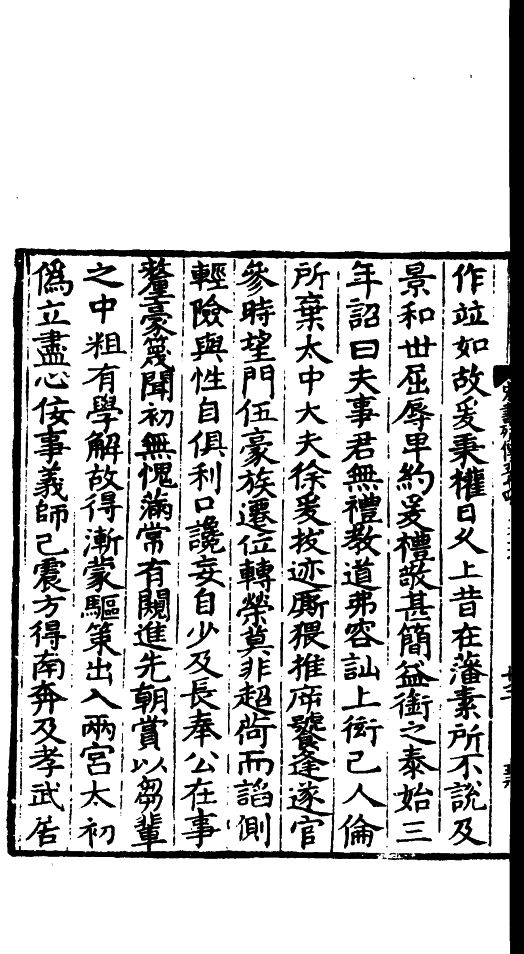 作並如故爰秉權日久上昔在藩素所不說及
景和世屈辱卑約爰禮敬甚簡益銜之泰始三
年詔曰夫事君無禮教道弗容訕上衒己人倫
所棄太中大夫徐爰拔迹廝猥推席饕逢遂官
參時望門伍豪族遷位轉榮莫非超荷而諂側
輕險與性自俱利口讒妄自少及長奉公在事
釐毫蔑聞初無愧滿常有闚進先朝賞以芻輩
之中粗有學解故得漸蒙驅策出入兩宮太初
偽立盡心佞事義師已震方得南奔及孝武居